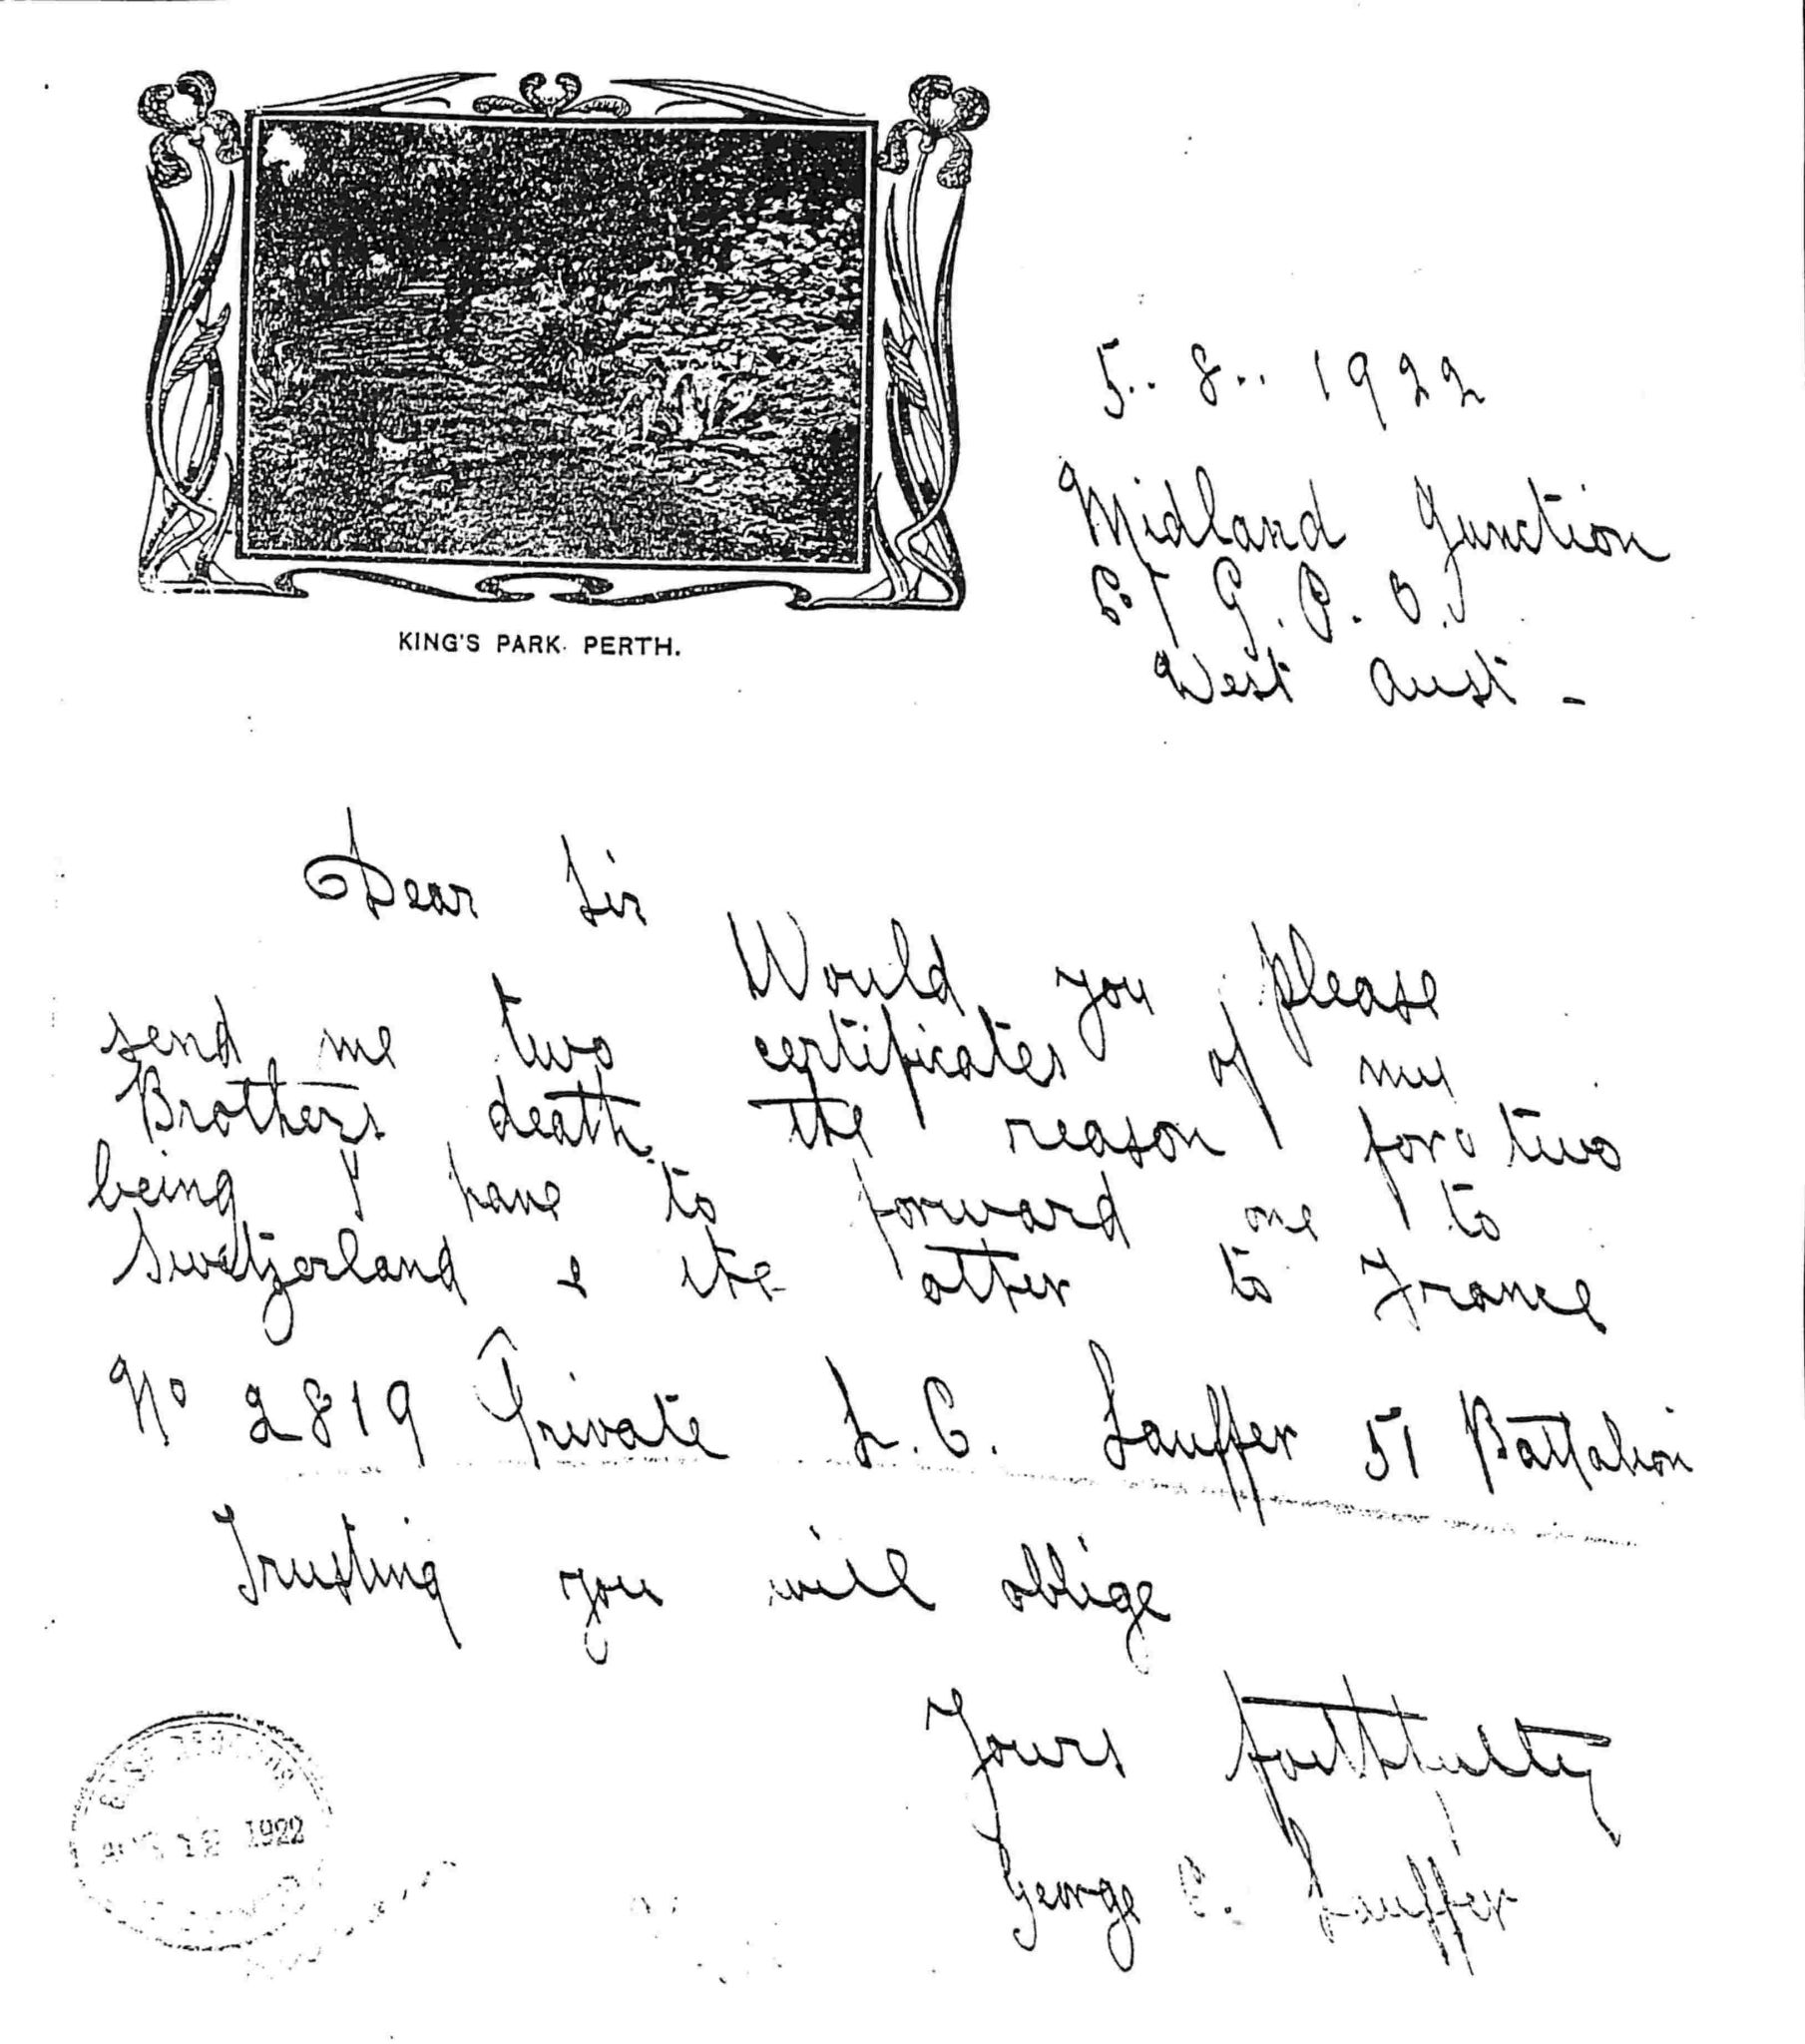 KING'S PARK. PERTH.
5.. 8.. 1922
Midland Junction
G. P. O.
West Aust -
Dear Sir
Would you please
send me two certificates of my
Brothers death. the reason for two
being I have to forward one to
Switzerland & the other to France
No 2819 Private L. C. Lauffer 51 Battalion
Trusting you will oblige
Yours faithfully
George C. Lauffer
BASE RECORDS
12 1922